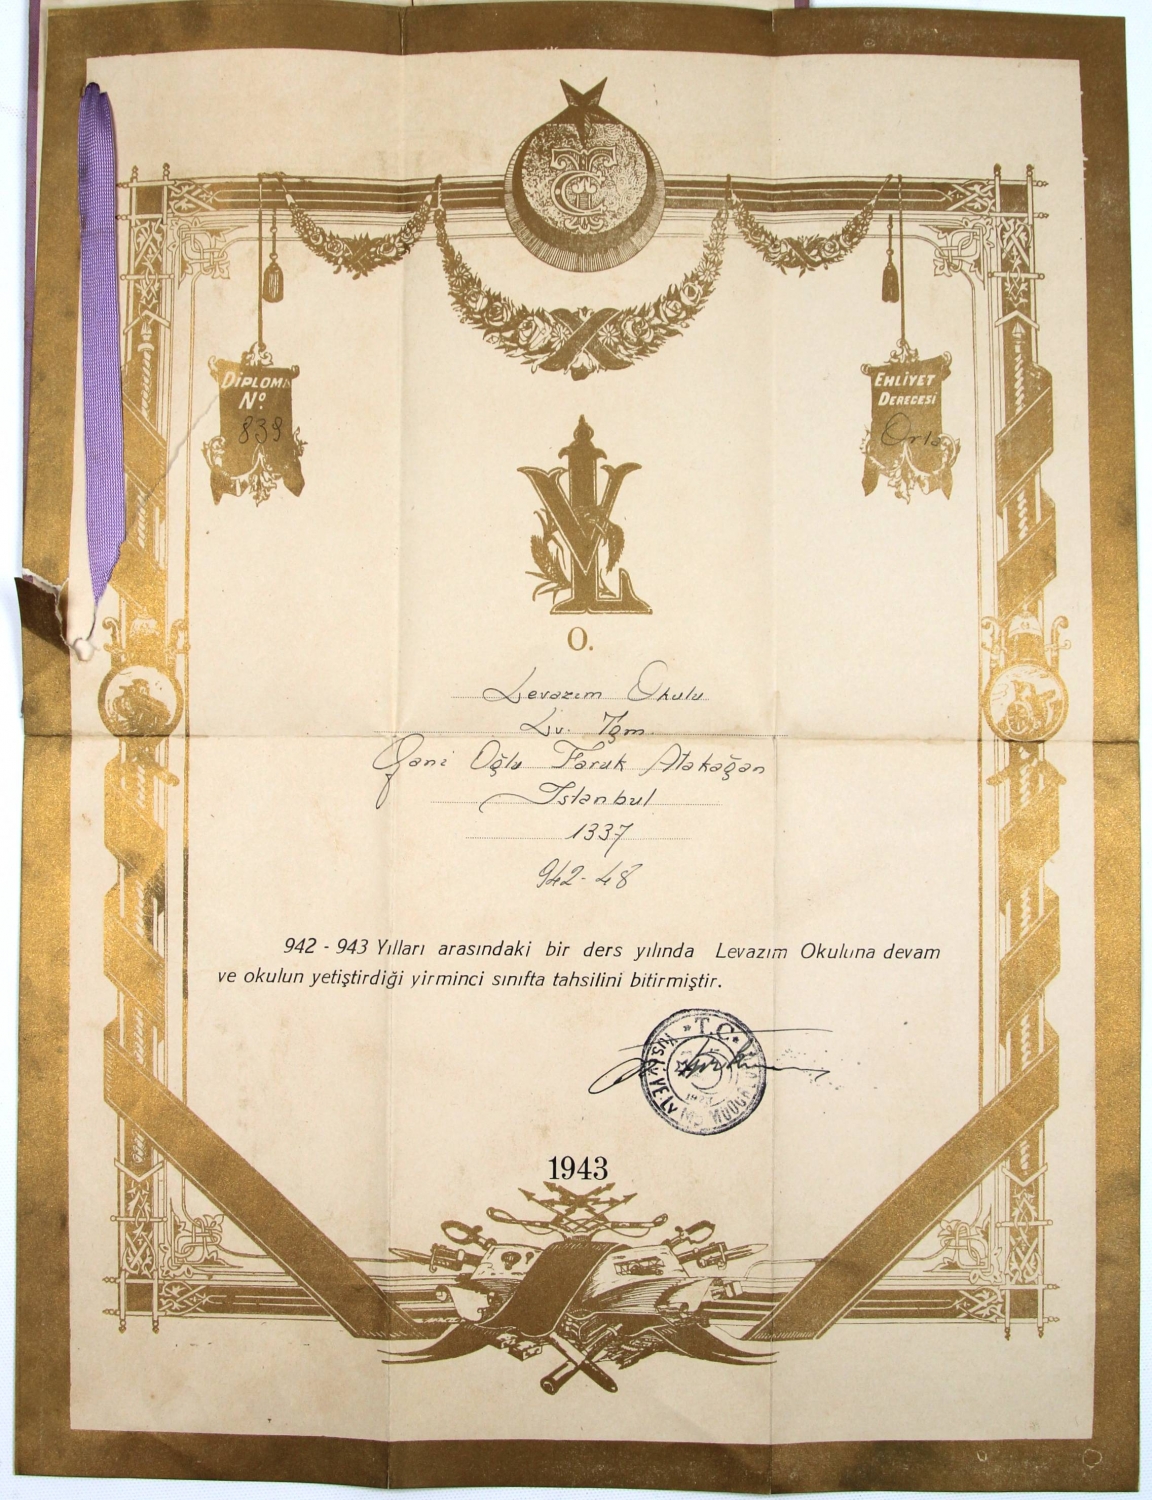 T.C.
DIPLOMA
Nº
839
EHLİYET
DERECESİ
Orta
LV
O.
Levazım Okulu
Lv. Tğm.
Gani Oğlu Faruk Atakağan
Istanbul
1337
942-48
942 - 943 Yılları arasındaki bir ders yılında Levazım Okuluna devam
ve okulun yetiştirdiği yirminci sınıfta tahsilini bitirmiştir.
T.C.
1943